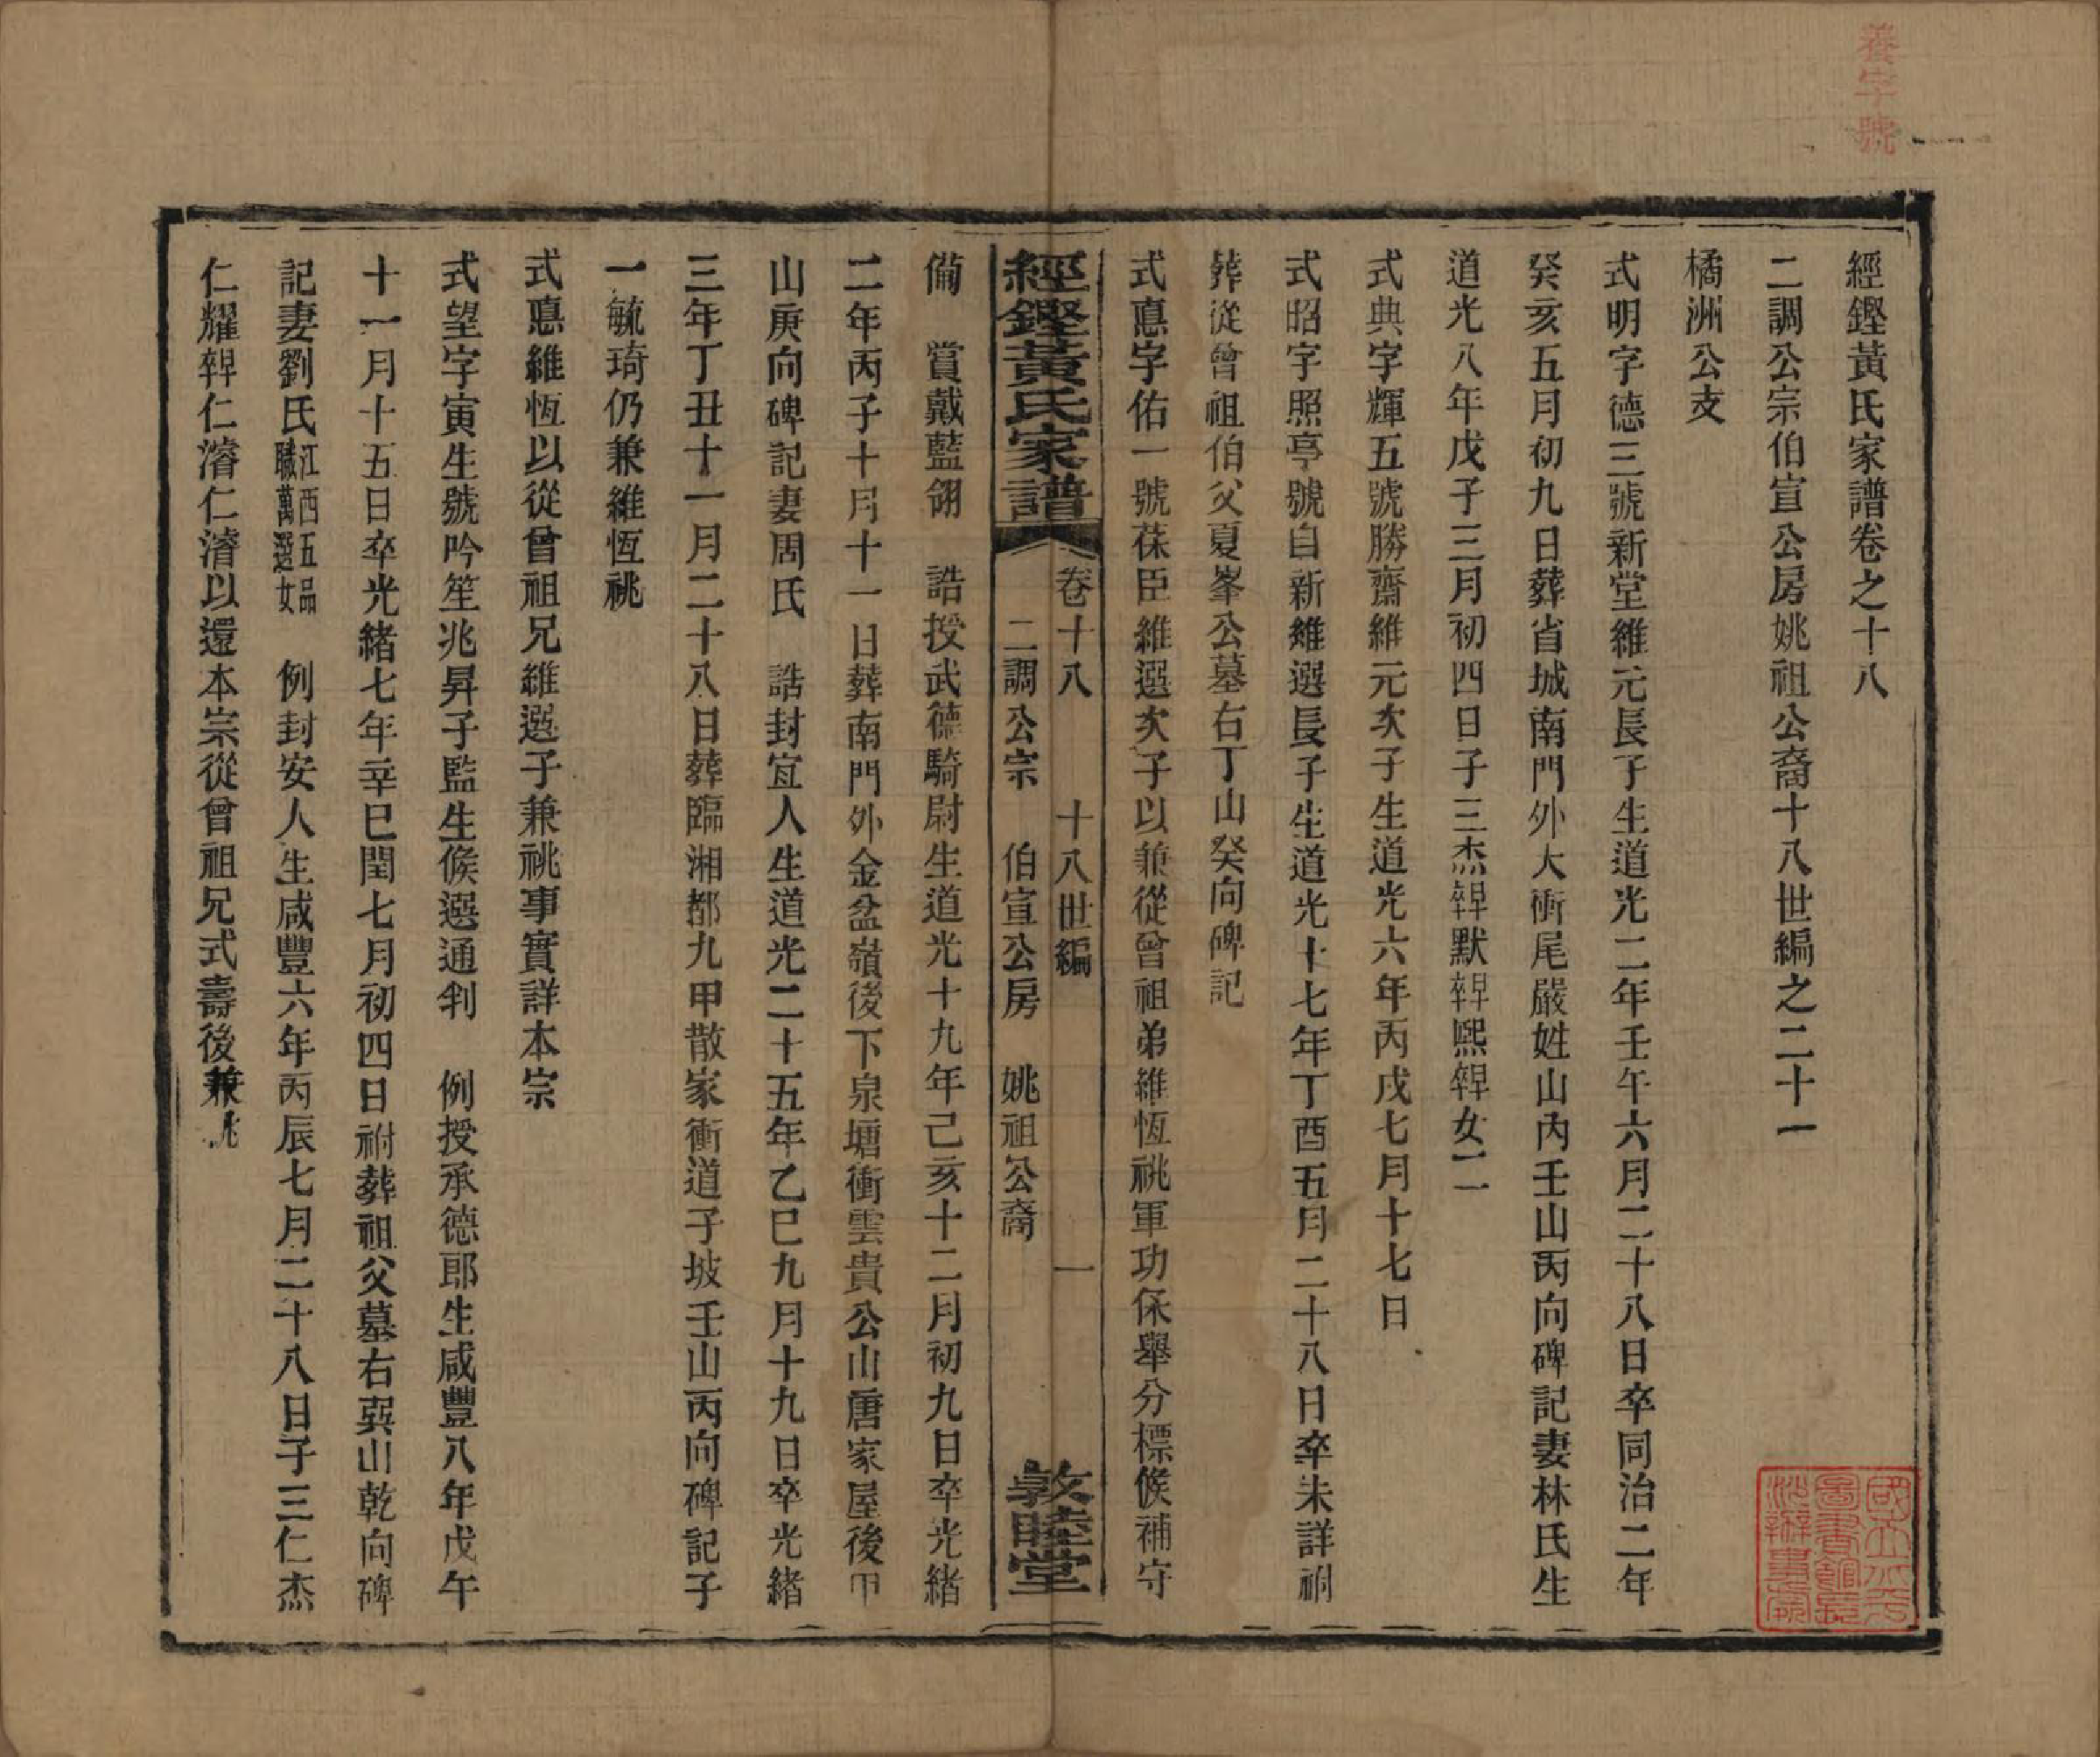 養字號
經鏗黃氏家譜卷之十八
二調公宗伯宣公房姚祖公裔十八世編之二十一
橘洲公支
式明字德三號新堂維元長子生道光二年壬午六月二十八日卒同治二年
癸亥五月初九日葬省城南門外大衝尾嚴姓山內壬山丙向碑記妻林氏生
道光八年戊子三月初四日子三杰皥默皥熙皥女二
式典字輝五號勝齋維元次子生道光六年丙戌七月十七日
式昭字照亭號自新維選長子生道光十七年丁酉五月二十八日卒未詳祔
葬從曾祖伯父夏峯公墓右丁山癸向碑記
式惪字佑一號葆臣維選次子以兼從曾祖弟維恆祧軍功保舉分標候補守
經鏗黃氏家譜 卷十八 十八世編 一
二調公宗 伯宣公房 姚祖公裔 敦睦堂
備 賞戴藍翎 誥授武德騎尉生道光十九年己亥十二月初九日卒光緒
二年丙子十月十一日葬南門外金盆嶺後下泉塘衝雲貴公山唐家屋後甲
山庚向碑記妻周氏 誥封宜人生道光二十五年乙巳九月十九日卒光緒
三年丁丑十一月二十八日葬臨湘都九甲散家衝道子坡壬山丙向碑記子
一毓琦仍兼維恆祧
式惪維恆以從曾祖兄維選子兼祧事實詳本宗
式望字寅生號吟笙兆昇子監生候選通判 例授承德郎生咸豐八年戊午
十一月十五日卒光緒七年辛巳閏七月初四日祔葬祖父墓右巽山乾向碑
記妻劉氏江西五品職萬選女 例封安人生咸豐六年丙辰七月二十八日子三仁杰
仁耀皥仁濬仁濬以還本宗從曾祖兄式壽後兼祧